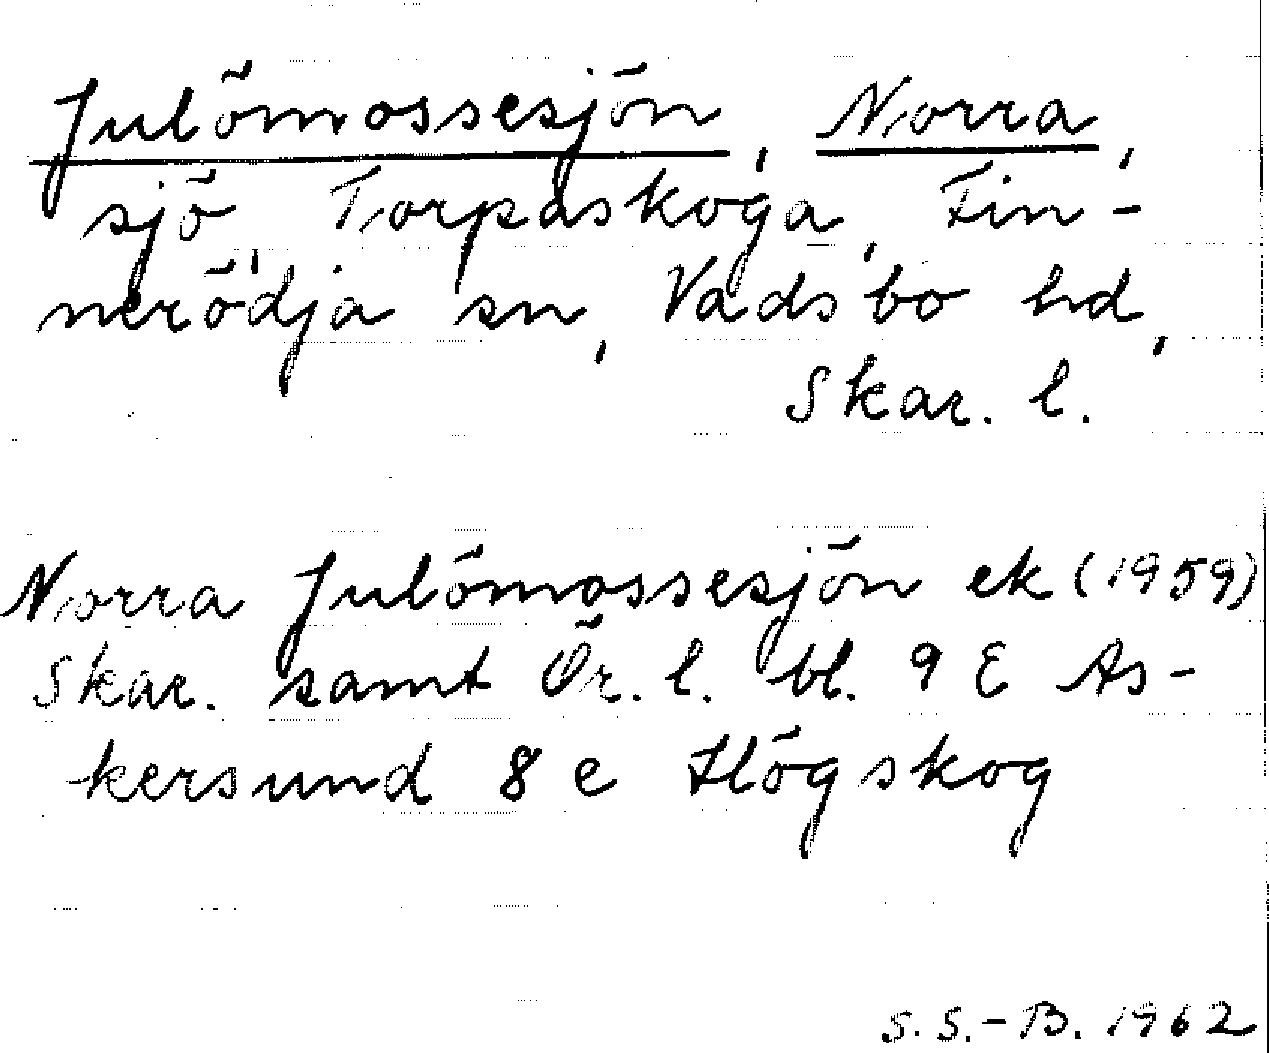 Julömossesjön, Norra,
sjö, Torpaskoga, Fin-
nerödja sn, Vadsbo hd,
Skar. l.
Norra Julömossesjön ek (1959)
Skar. samt Ör. l. bl. 9 E As-
kersund 8 e Högskog
S. S.-B. 1962